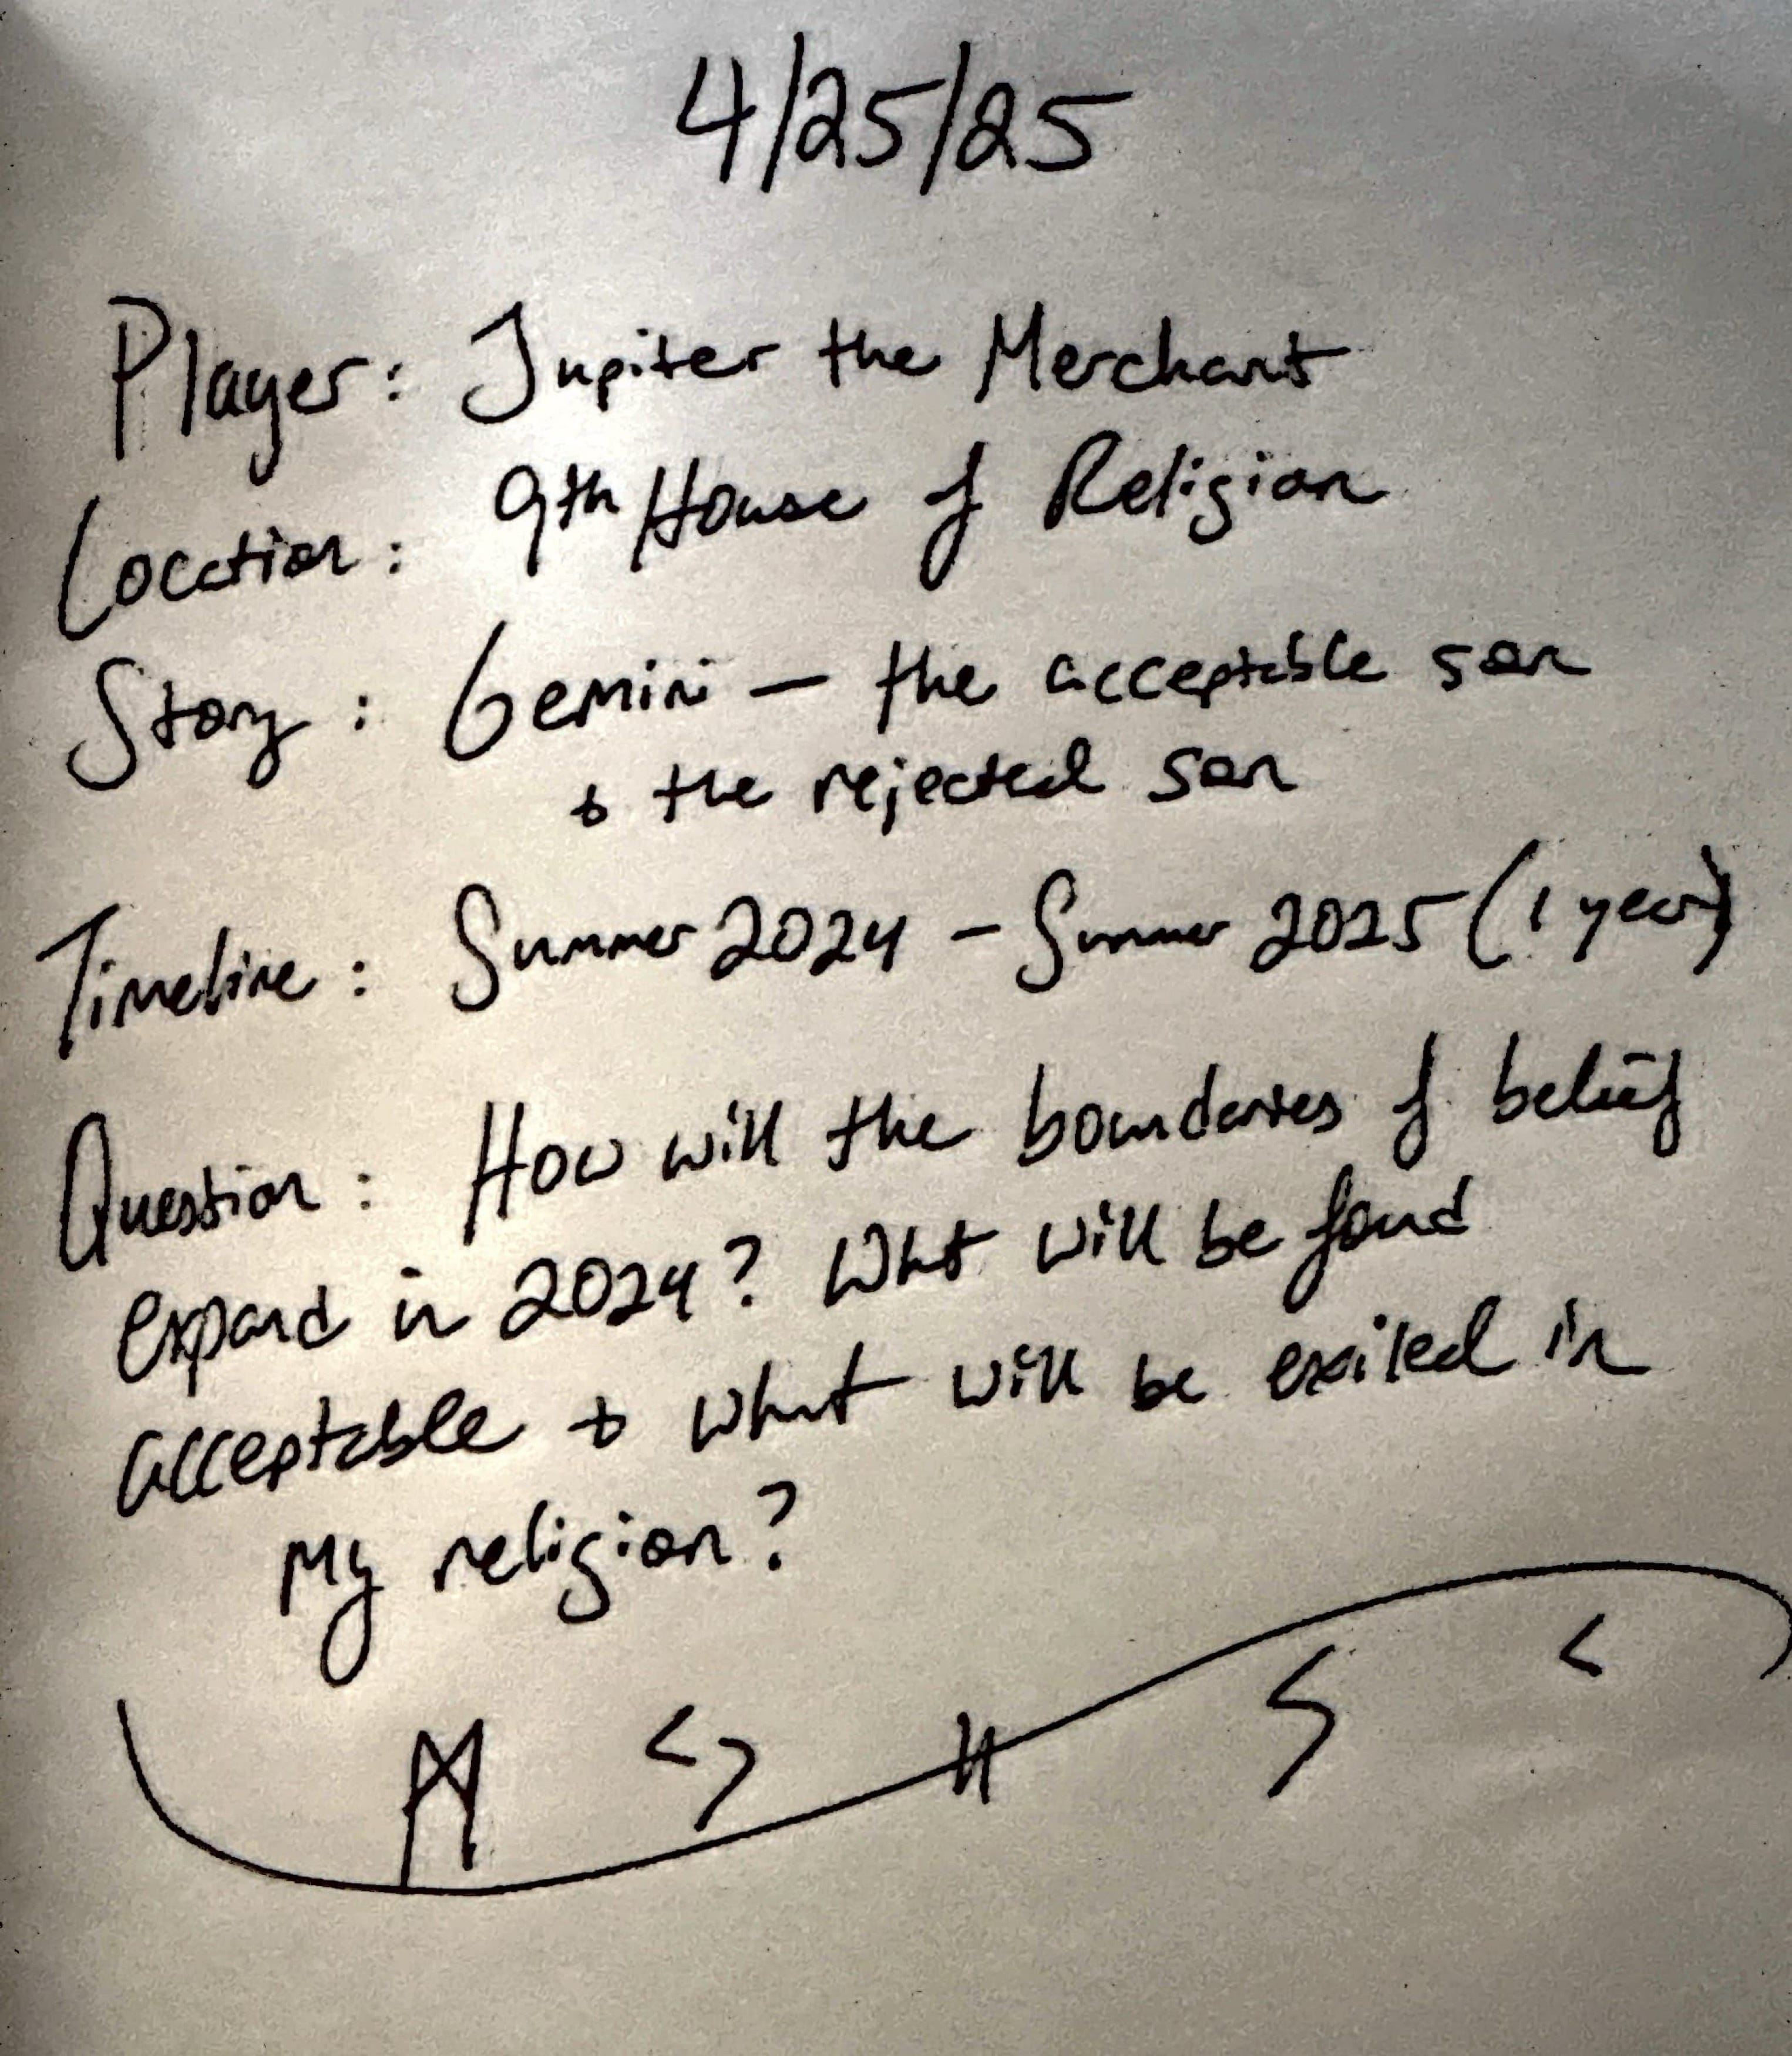 4/25/25
Player: Jupiter the Merchant
Location: 9th House of Religion
Story: Gemini — the acceptable son
& the rejected son
Timeline: Summer 2024 – Summer 2025 (1 year)
Question: How will the boundaries of belief
expand in 2024? What will be found
acceptable & what will be exiled in
my religion?
ᛗ ᛃ ᚺ ᛊ ᚲ